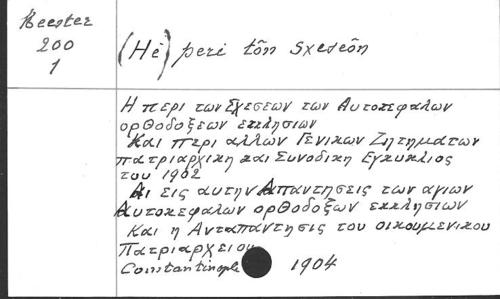 Keester
200
1
(Hē) peri tôn sxeseôn
Η περι των Σχεσεων των Αυτοκεφαλων
ορθοδοξεων εκκλησιων
Και περι αλλων Γενικων Ζητηματων
πατριαρχικη και Συνοδικη Εγκυκλιος
του 1902
Αι εις αυτην Απαντησεις των αγιων
Αυτοκεφαλων ορθοδοξων εκκλησιων
Και η Ανταπαντησις του οικουμενικου
Πατριαρχειου
Constantinople 1904